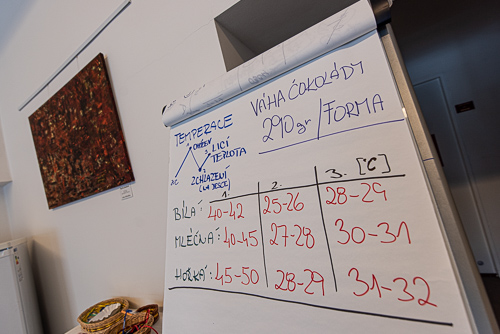 TEMPERACE
VÁHA ČOKOLÁDY
290gr/FORMA
OHŘEV
LICÍ
TEPLOTA
ZCHLAZENÍ
1. 2. 3. [°C]
BÍLÁ: 40-42 25-26 28-29
MLÉČNÁ: 40-45 27-28 30-31
HOŘKÁ: 45-50 28-29 31-32